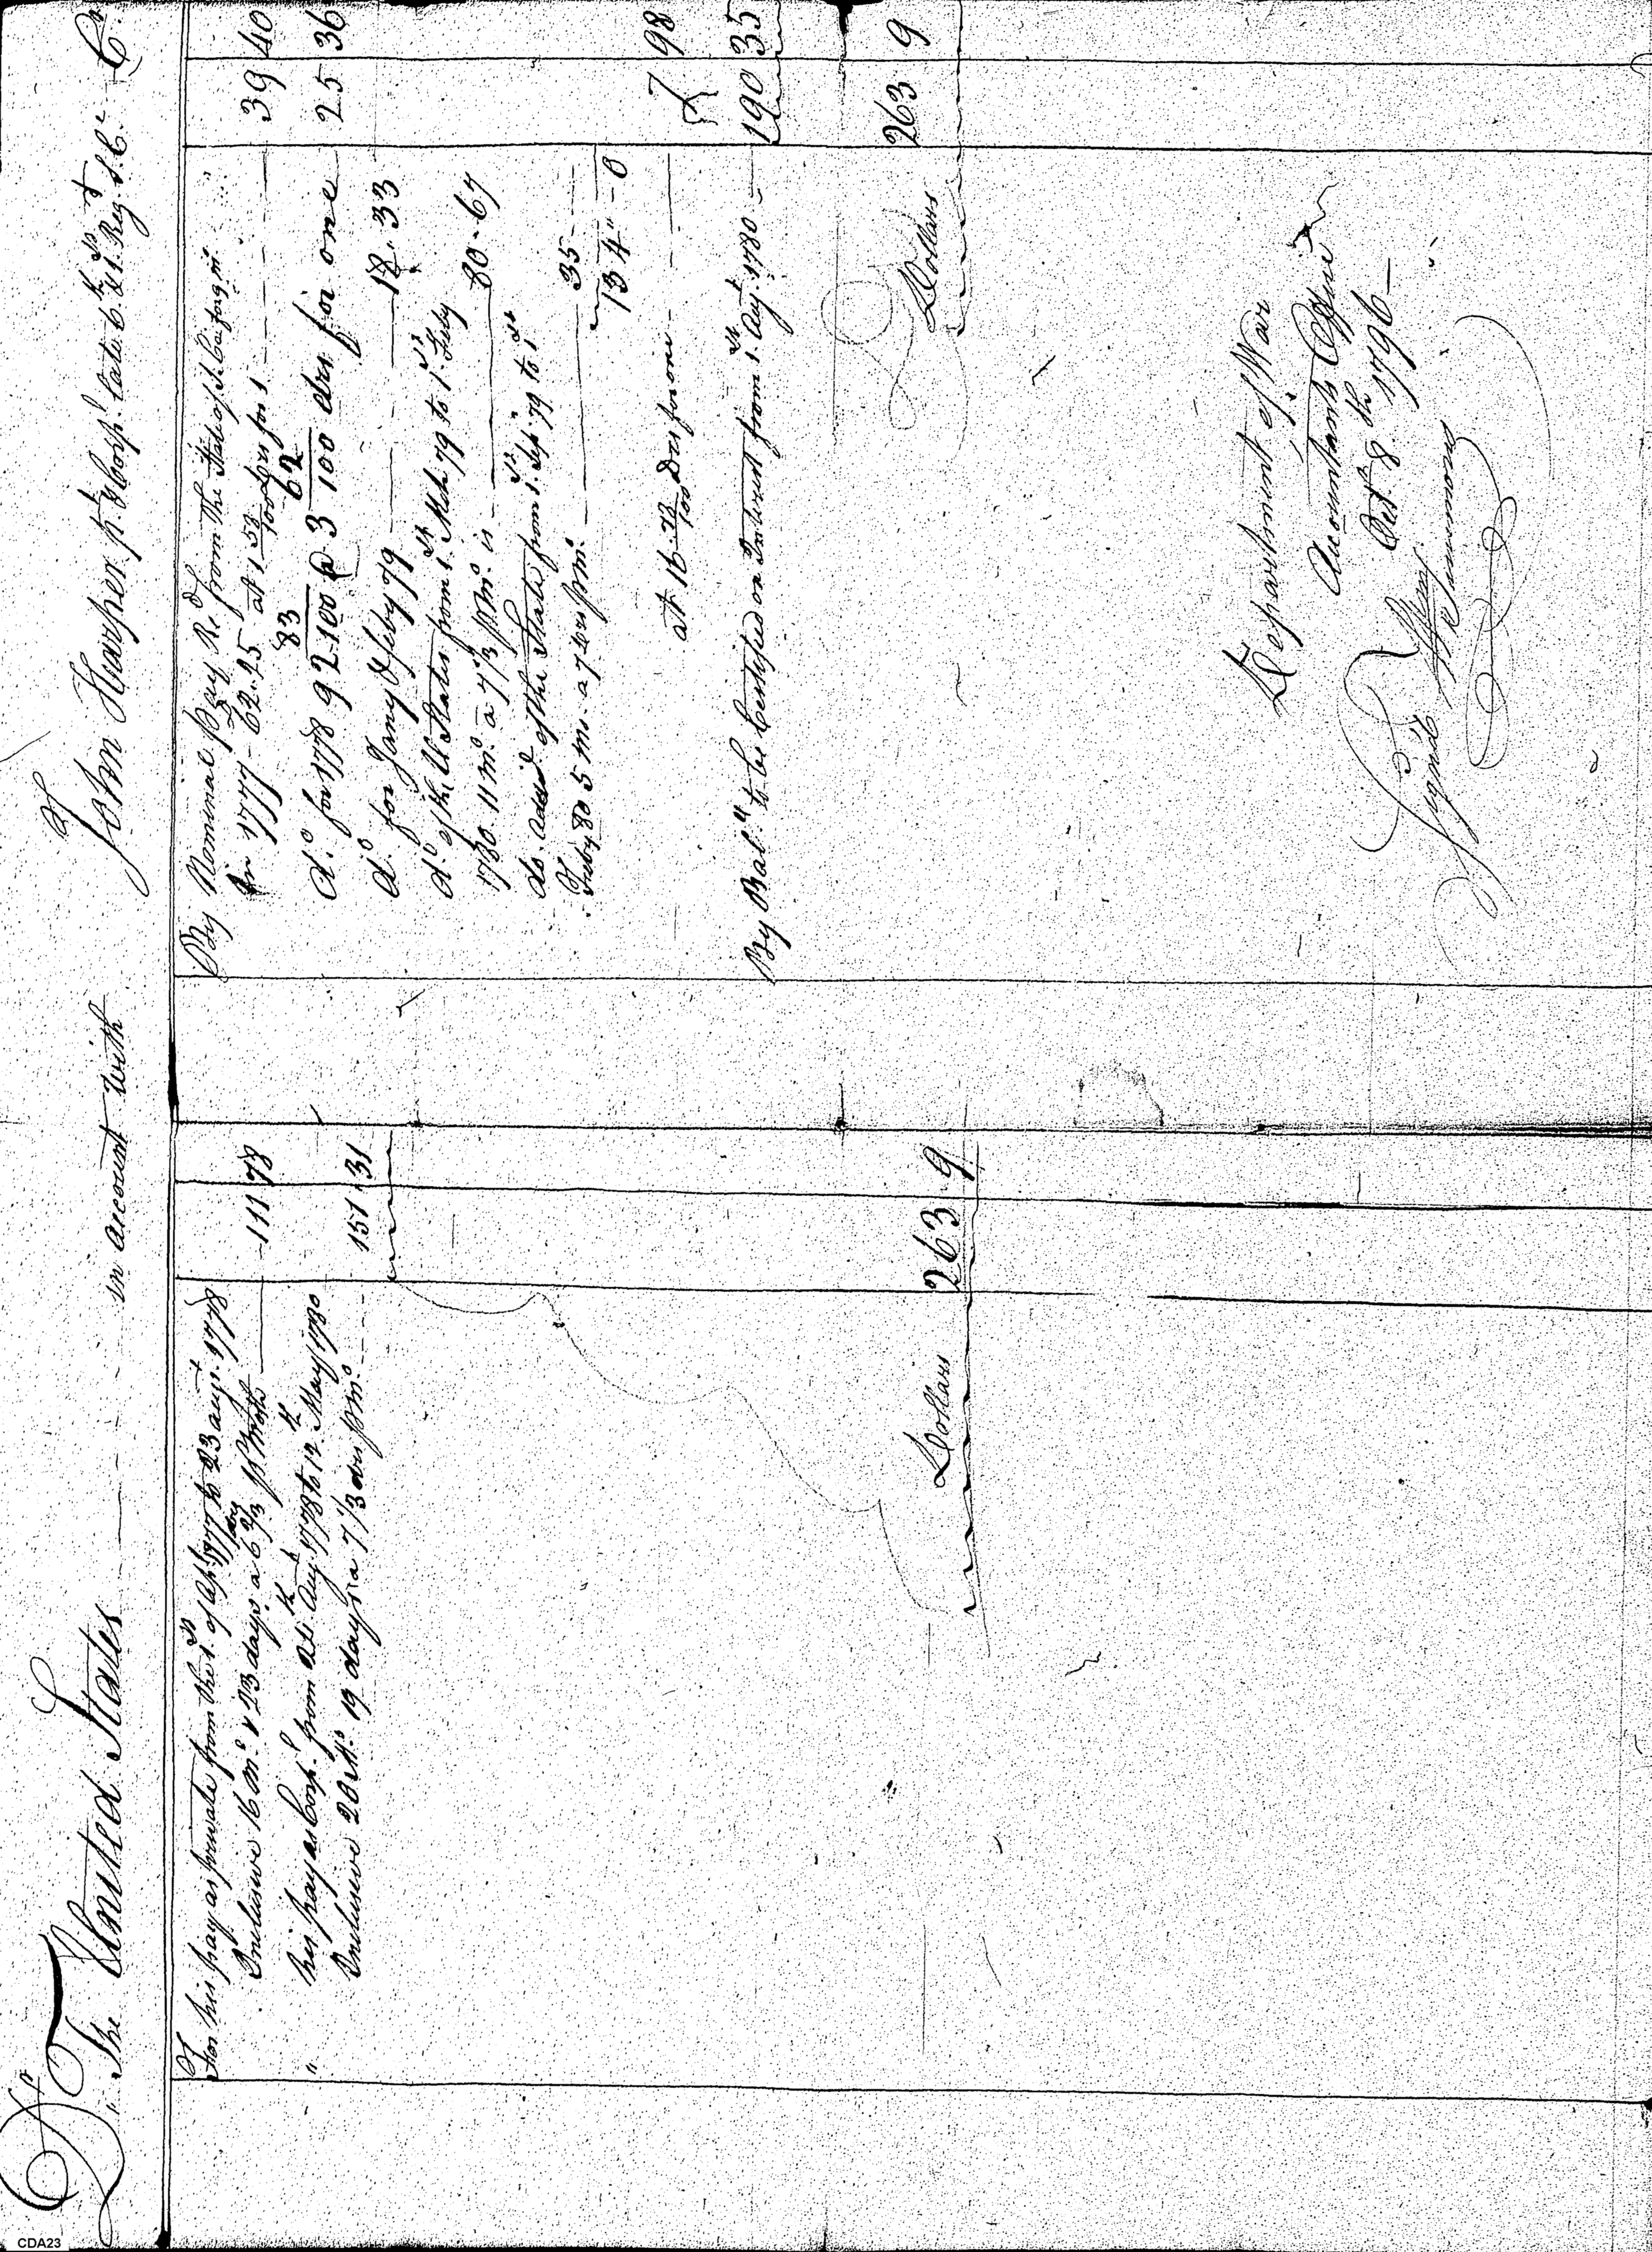 Dr The United States in account with John Harper pt. & Corpl. late 6th & 1st Regt S.C. Cr
For his pay as private from the 1st of Apl. 1777 to 23 augt. 1778
Inclusive 16 mo. & 23 days a 6 2/3 drs p Month 111 78
" his pay as Corpl. from 24th Augt. 1778 to 12th May 1780
Inclusive 20 Mo. 19 days a 7 1/3 drs p mo. 151.31
Dollars 263 9
By Nominal pay Recd from the State of S. Ca
In 1777 - 62.25 at 1 58/100 drs for 1 39 40
do. for 1778 92 83/100 @ 3 62/100 drs. for one 25 36
do. for Jany & feby 79 18.33
do of the U States from 1st Mch 79 to 1st Feby
1780 11 mo. a 7 1/3 p mo. is 80.67
do. added of the State from 1st Sep. 79 to 1st
Feby 80 5 mo. a 7 drs p mo. 35
134"-0
at 16 Drs for one 7 98
By Bal. to be Certified on Interest from 1st Augt. 1780 190 35
Dollars 263 9
Department of War
Accountants Office
Oct. 8th 1796
Signed Wm. Simmons
CDA23